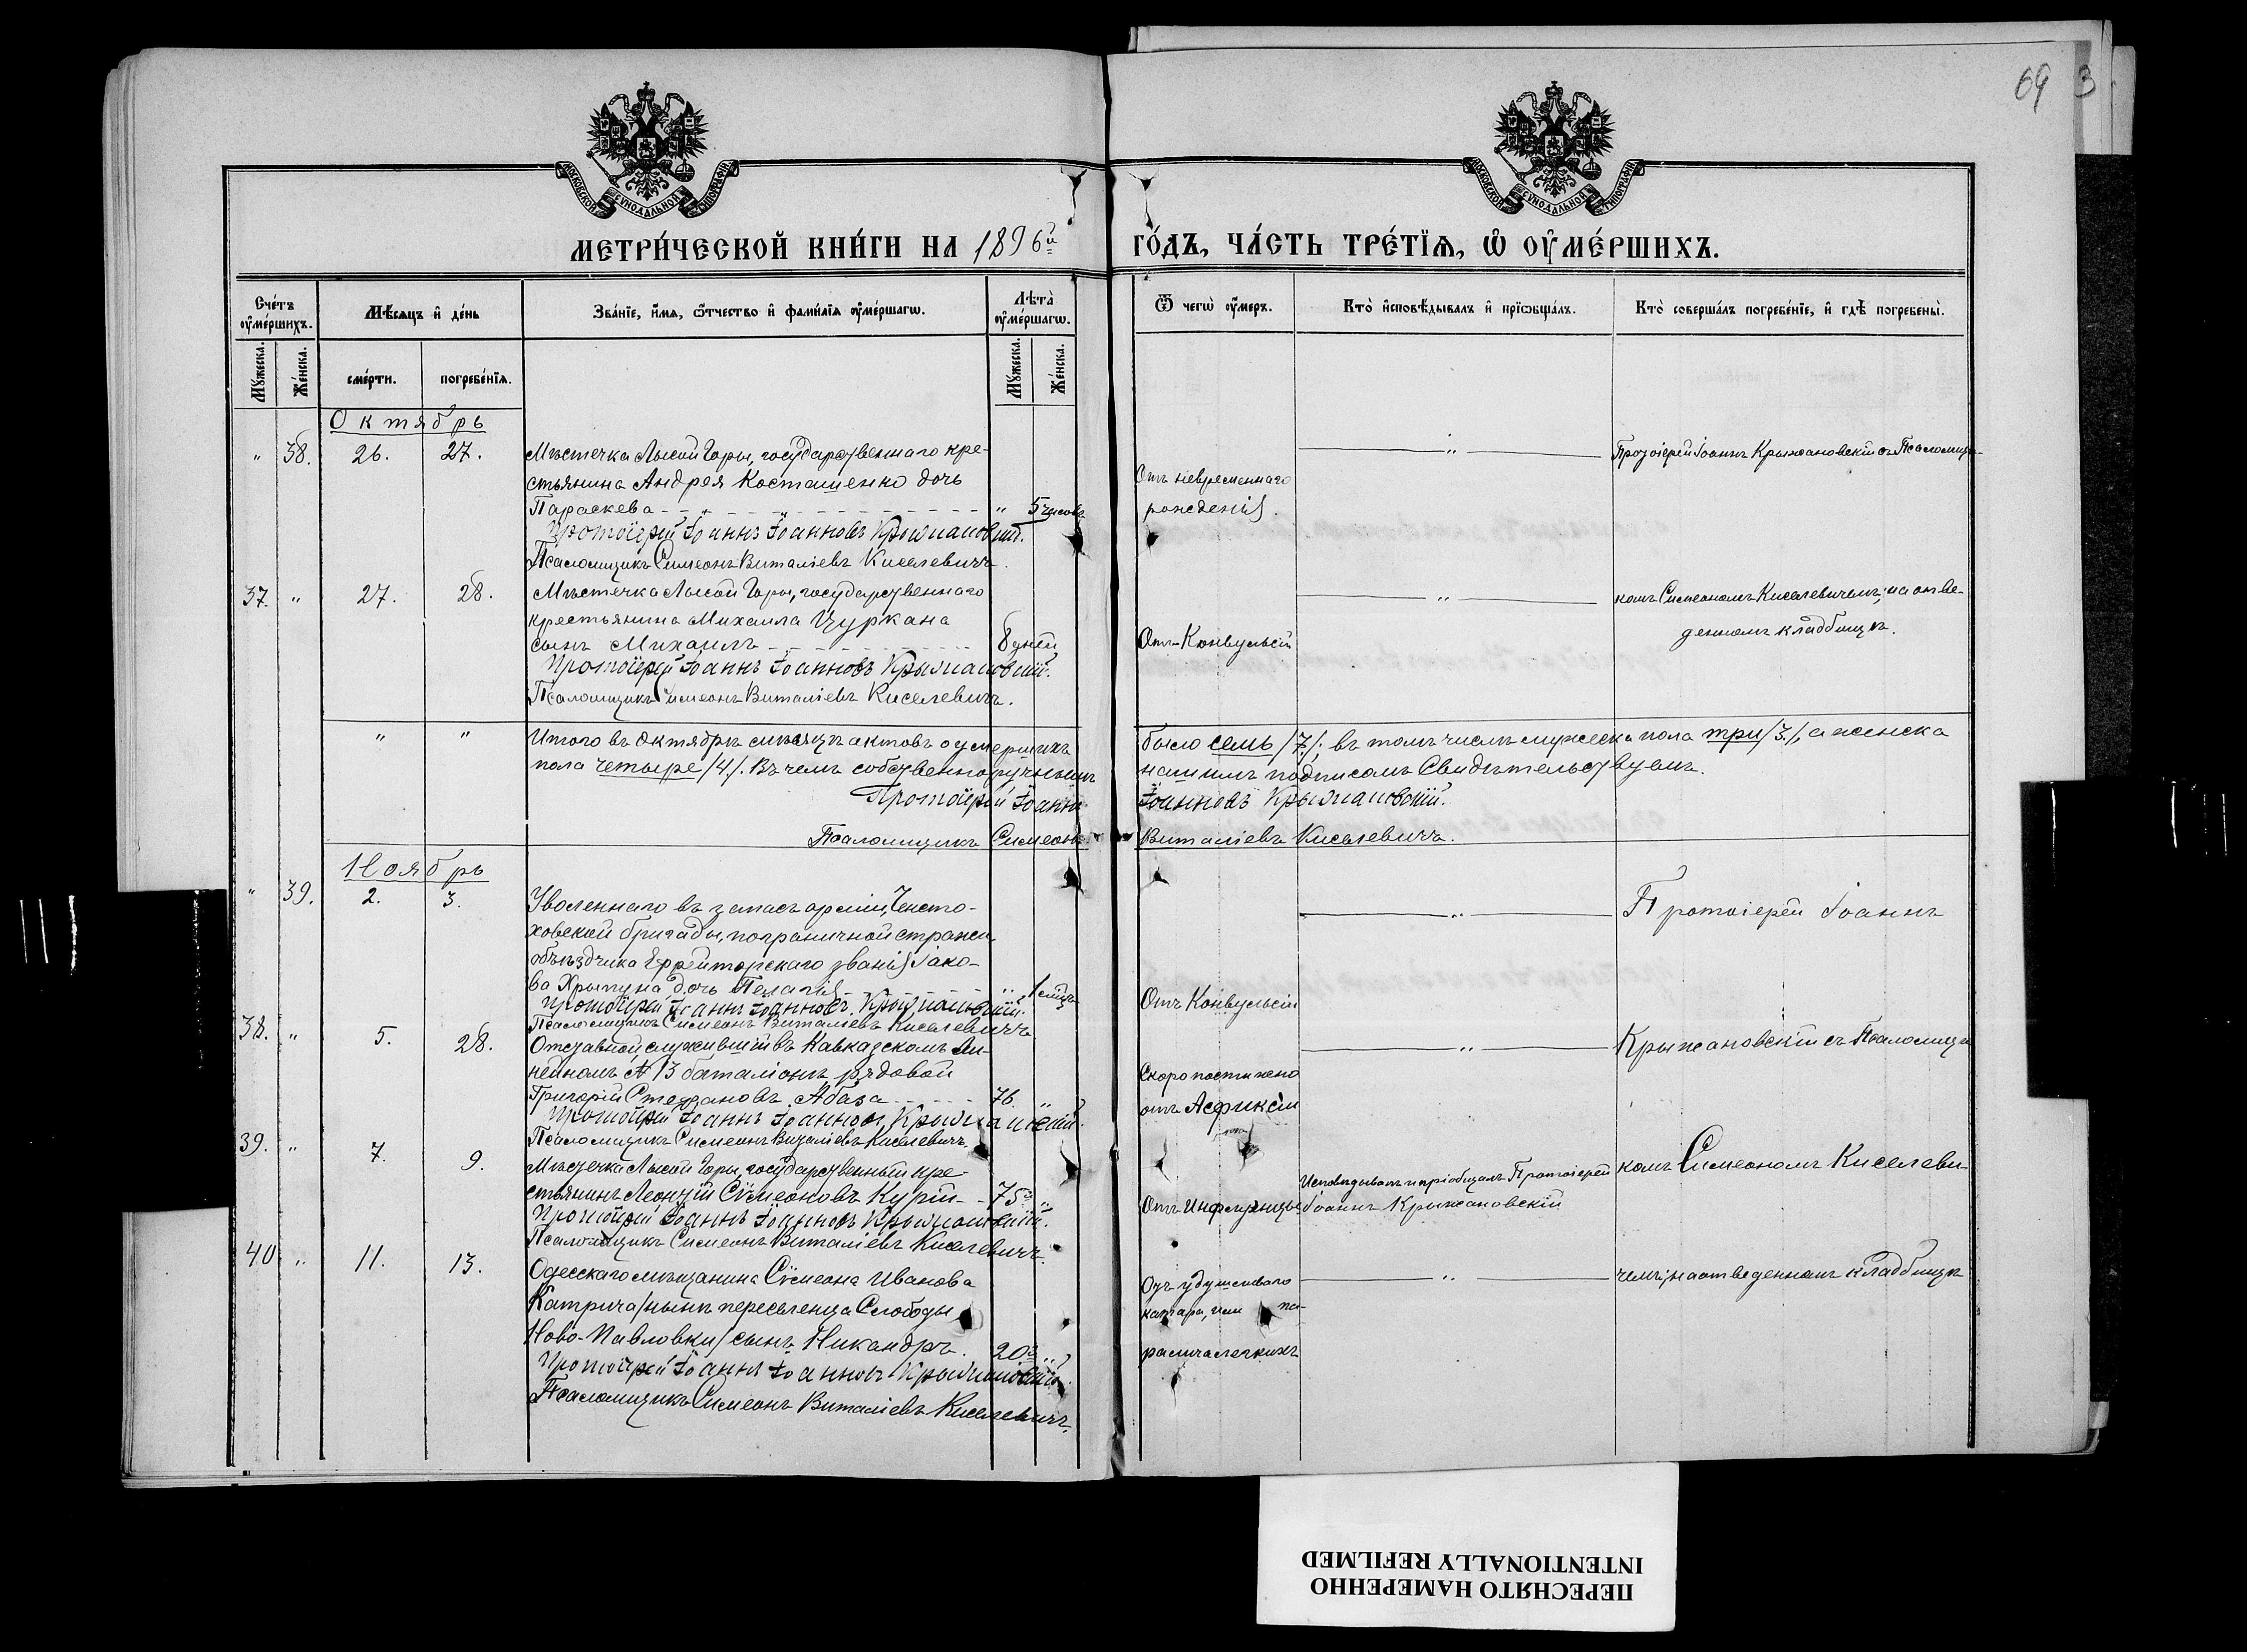 69 3
МОСКОВСКОЙ СѴНОДАЛЬНОЙ ТИПОГРАФІИ
МОСКОВСКОЙ СѴНОДАЛЬНОЙ ТИПОГРАФІИ
МЕТРИ́ЧЕСКОЙ КНИ́ГИ НА 1896й
ГО́ДЪ, ЧА́СТЬ ТРЕ́ТЇѦ, Ѡ ОУМЕ́РШИХЪ.
Сче́тъ оуме́ршихъ.
Мѣ́сяцъ и де́нь
Зва́нїе, и́мѧ, ѻ́тчество и фами́лїѧ оуме́ршагѡ.
Лѣта̀ оуме́ршагѡ.
Ѿ чегѡ̀ оу́меръ.
Кто̀ исповѣ́дывалъ и прїѡбща́лъ.
Кто̀ соверша́лъ погребе́нїе, и гдѣ̀ погребены̀.
Му́жеска.
Же́нска.
сме́рти.
погребе́нїѧ.
Му́жеска.
Же́нска.
Октябрь
" 38. 26. 27. Мѣстечка Лысой Горы, государственнаго кре-
стьянина Андрея Косташенко дочь
Параскева " 5 часовъ
Протоіерей Іоаннъ Іоанновъ Крыжановскій.
Псаломщикъ Симеонъ Виталіевъ Киселевичъ.
Отъ невременнаго
рожденія.
"
Протоіерей Іоаннъ Крыжановскій съ Псаломщи-
37. " 27. 28. Мѣстечка Лысой Горы, государственнаго
крестьянина Михаила Цуркана
сынъ Михаилъ 8 дней
Протоіерей Іоаннъ Іоанновъ Крыжановскій.
Псаломщикъ Симеонъ Виталіевъ Киселевичъ.
Отъ Конвульсій
"
комъ Симеономъ Киселевичемъ; на отве-
денномъ кладбищѣ.
" " Итого въ Октябрѣ мѣсяцѣ актовъ о умершихъ было семь /7/; въ томъ числѣ мужеска пола три /3/, а женска
пола четыре /4/. Въ чемъ собственноручнымъ нашимъ подписомъ Свидѣтельствуемъ.
Протоіерей Іоаннъ Іоанновъ Крыжановскій.
Псаломщикъ Симеонъ Виталіевъ Киселевичъ.
Ноябрь
" 39. 2. 3. Уволеннаго въ запасъ арміи, Ченсто-
ховской бригады, пограничной стражи
объѣздчика Ефрейторскаго званія Іако-
ва Хрыпуна дочь Пелагія " 1 мѣц.
Протоіерей Іоаннъ Іоанновъ Крыжановскій.
Псаломщикъ Симеонъ Виталіевъ Киселевичъ
Отъ Конвульсіи
"
Протоіерей Іоаннъ
38. " 5. 28. Отставной, служившій въ Кавказскомъ Ли-
нейномъ № 13 баталіонѣ рядовой
Григорій Стефановъ Абаза 76. "
Протоіерей Іоаннъ Іоанновъ Крыжановскій.
Псаломщикъ Симеонъ Виталіевъ Киселевичъ.
Скоропостижно
отъ Асфиксіи
"
Крыжановскій съ Псаломщи
39. " 7. 9. Мѣстечка Лысой Горы, государственный кре-
стьянинъ Леонтій Сѵмеоновъ Курій 75 "
Протоіерей Іоаннъ Іоанновъ Крыжановскій.
Псаломщикъ Симеонъ Виталіевъ Киселевичъ.
Отъ Инфлуэнцы
Исповѣдывалъ и пріобщалъ Протоіерей
Іоаннъ Крыжановскій
комъ Симеономъ Киселеви-
40 " 11. 13. Одесскаго мѣщанина Сѵмеона Иванова
Катрича /нынѣ переселенца Слободы
Ново-Павловки/ сынъ Никандръ. 20 "
Протоіерей Іоаннъ Іоанновъ Крыжановскій.
Псаломщикъ Симеонъ Виталіевъ Киселевичъ.
Отъ удушливаго
катара, или па-
ралича легкихъ
"
чемъ; на отведенномъ кладбищѣ
ПЕРЕСНЯТО НАМЕРЕННО
INTENTIONALLY REFILMED